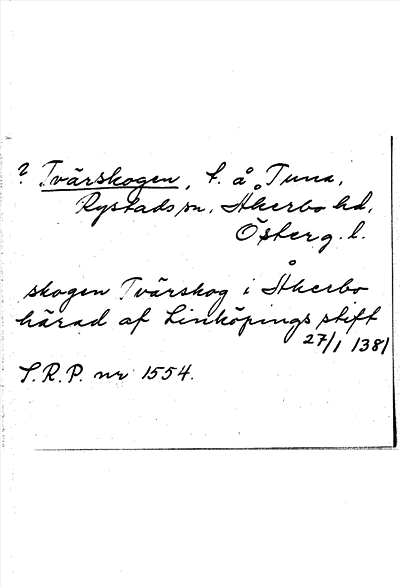 ? Tvärskogen, t. å Tuna,
Rystads sn, Åkerbo hd,
Österg. l.
skogen Tvärskog i Åkerbo
härad af Linköpings stift
27/1 1381
S.R.P. nr 1554.